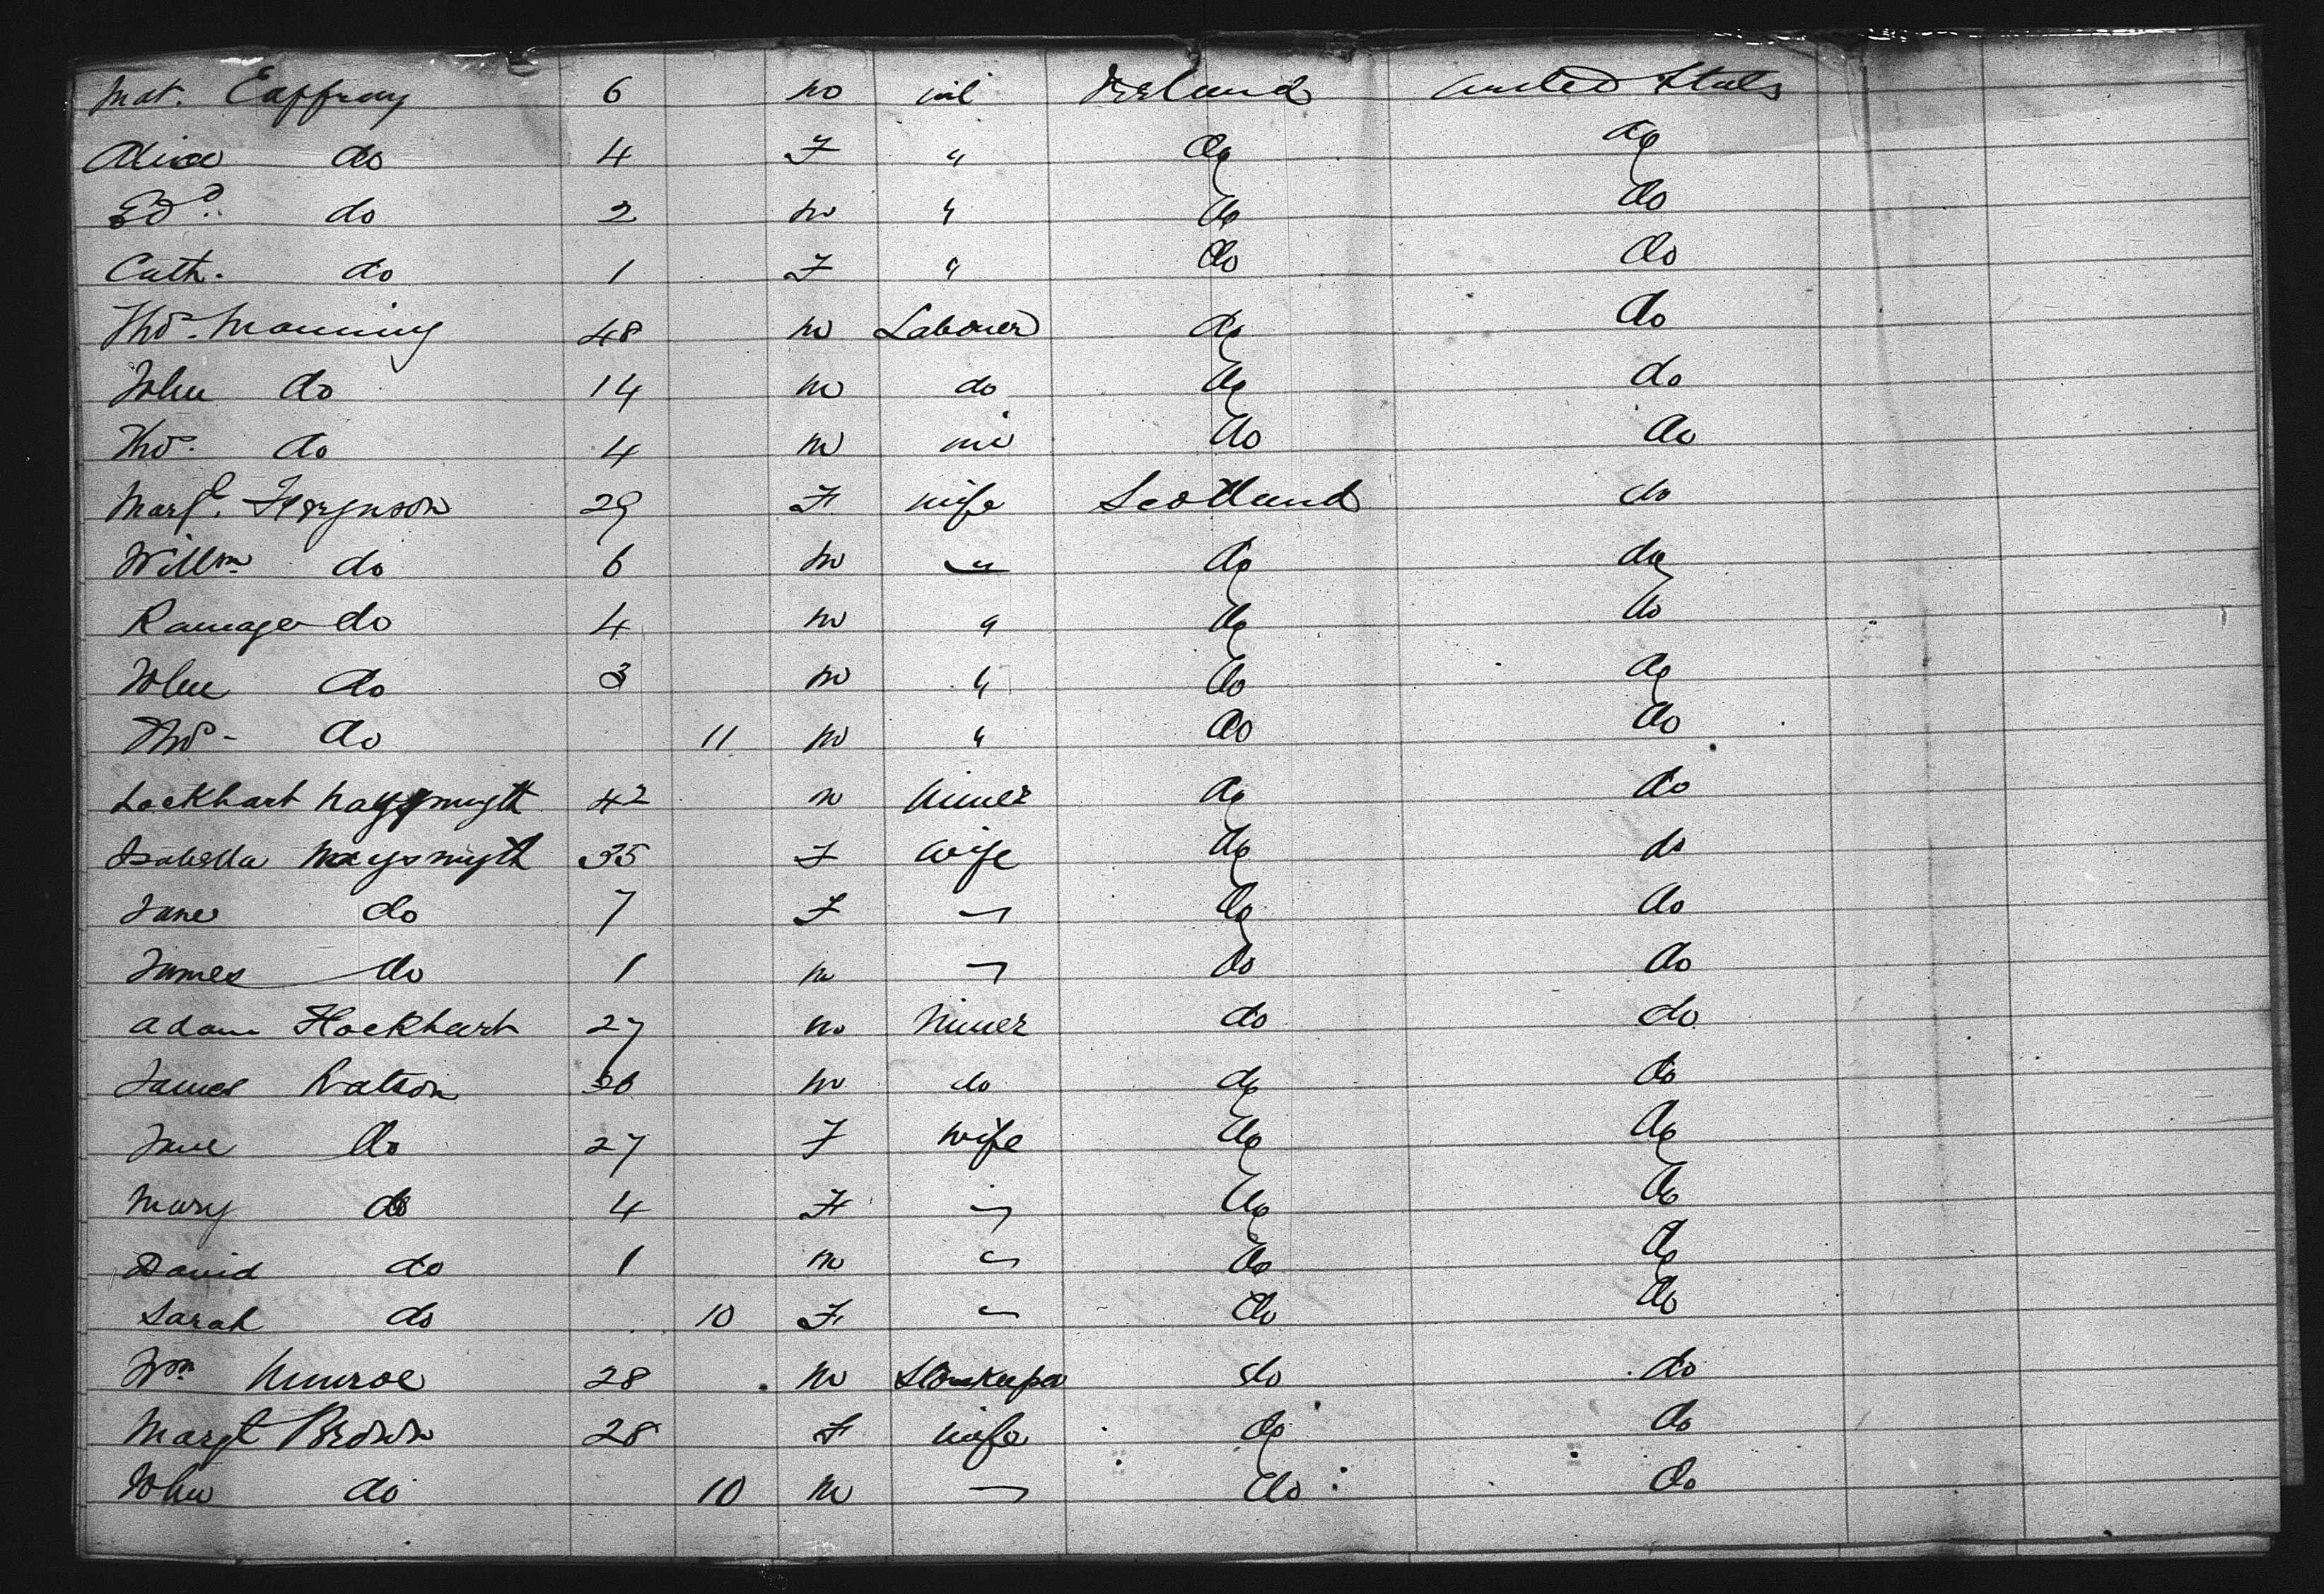 Mat. Eaffray 6 m nil Ireland United States
Alice do 4 F " do do
Edd. do 2 m " do do
Cath. do 1 F " do do
Thos. Manning 48 m Labourer do do
John do 14 m do do do
Thos. do 4 m nil do do
Margt. Ferguson 29 F wife Scotland do
Willm do 6 m " do do
Ramage do 4 m " do do
John do 3 m " do do
Thos. do 11 m " do do
Lockhart Naysmyth 42 m Miner do do
Isabella Naysmyth 35 F Wife do do
Jane do 7 F " do do
James do 1 m " do do
Adam Hockhart 27 m Miner do do
James Watson 36 m do do do
Jane do 27 F wife do do
Mary do 4 F " do do
David do 1 m " do do
Sarah do 10 F " do do
Wm Munroe 28 m Storekeeper do do
Margt Brown 28 F wife do do
John do 10 m " do do